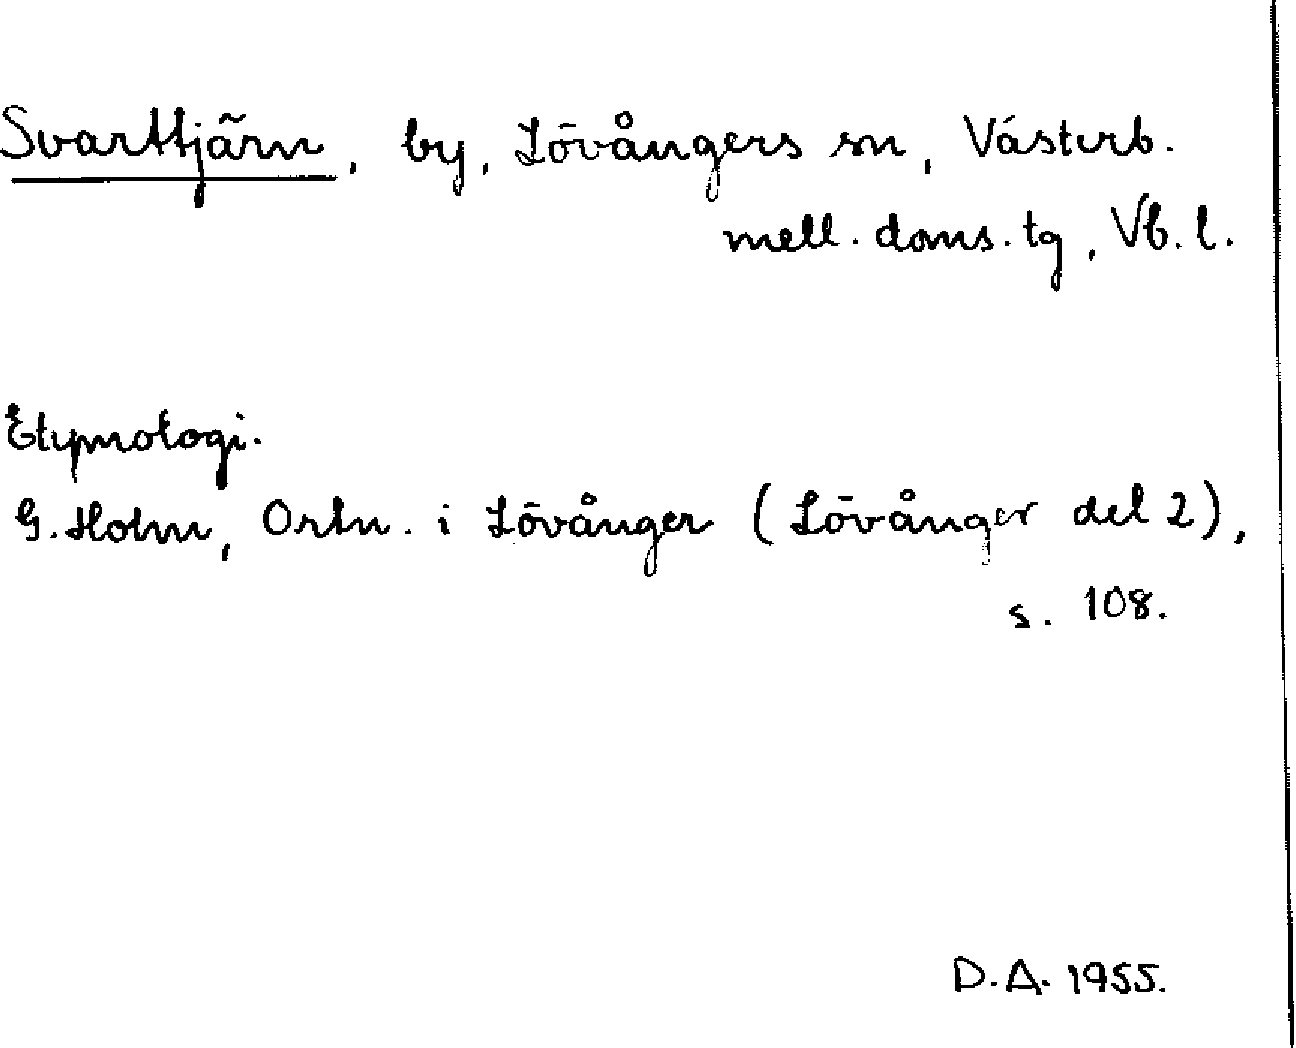 Svarttjärn, by, Lövångers sn, Västerb.
mell. doms. tg, Vb. l.
Etymologi.
G. Holm, Ortn. i Lövånger (Lövånger del 2),
s. 108.
D.A. 1955.